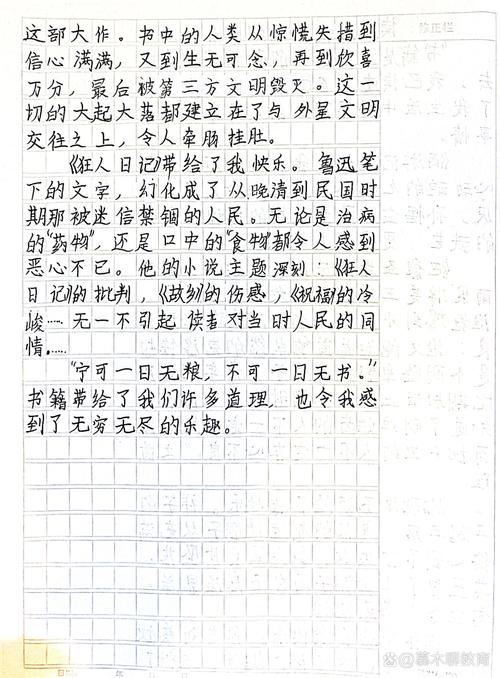 这部大作。书中的人类从惊慌失措到
信心满满，又到生无可念，再到欣喜
万分，最后被第三方文明毁灭。这一
切的大起大落都建立在了与外星文明
交往之上，令人牵肠挂肚。
《狂人日记》带给了我快乐。鲁迅笔
下的文字，幻化成了从晚清到民国时
期那被迷信禁锢的人民。无论是治病
的“药物”，还是口中的“食物”都令人感到
恶心不已。他的小说主题深刻：《狂人
日记》的批判，《故乡》的伤感，《祝福》的冷
峻……无一不引起读者对当时人民的同
情……
“宁可一日无粮，不可一日无书。”
书籍带给了我们许多道理，也令我感
到了无穷无尽的乐趣。
@慕木聊教育